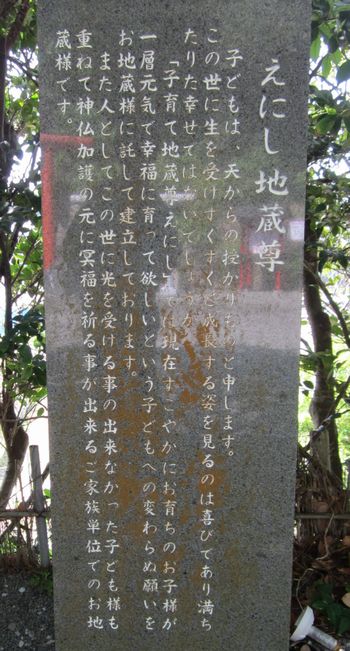 えにし地蔵尊
子どもは、天からの授かりものと申します。
この世に生を受けすくすくと成長する姿を見るのは喜びであり満ち
たりた幸せではないでしょうか。
「子育て地蔵尊(えにし)」では現在すこやかにお育ちのお子様が
一層元気で幸福に育って欲しいという子どもへの変わらぬ願いを
お地蔵様に託して建立しております。
また人としてこの世に光を受ける事の出来なかった子ども様も
重ねて神仏加護の元に冥福を祈る事が出来るご家族単位でのお地
蔵様です。